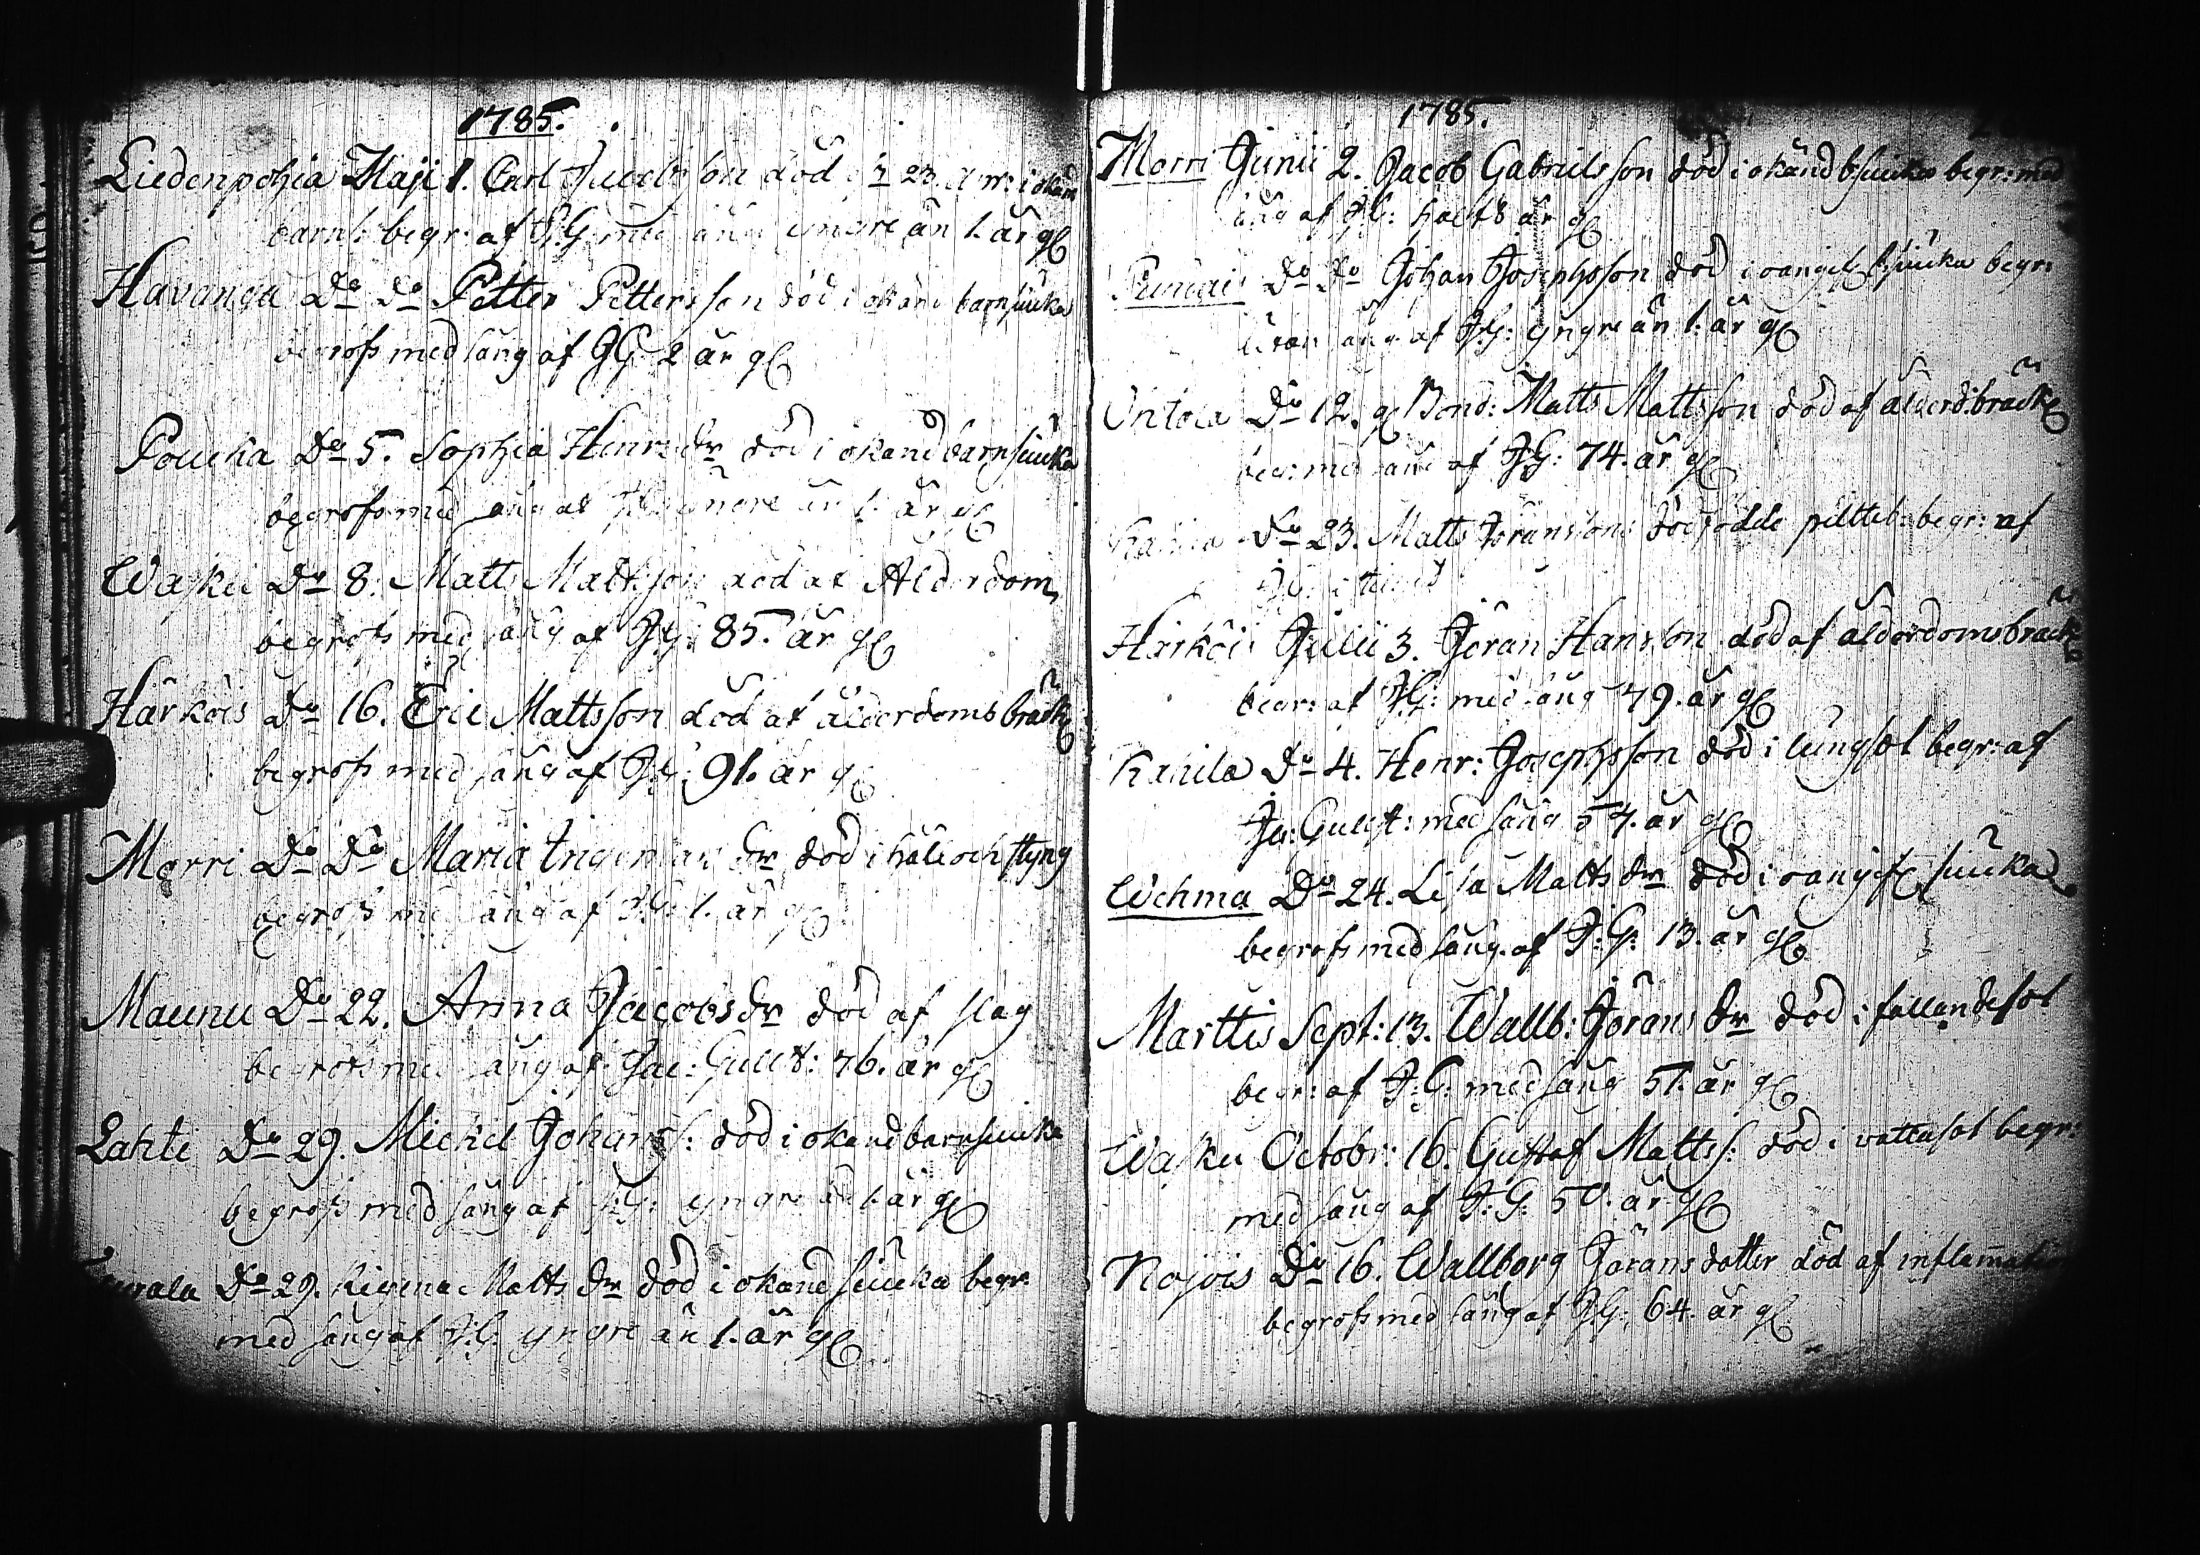 1785.
Liedenpohja Maji 1. Carl Jacobsson död d: 23. Apr: i okänd
barns: begr: af J:G: med sång yngre än 1. år gl
Havanga Do Do Petter Pettersson död i okänd barnsiuka
begrofs med sång af JG: 2 år gl
Poucka Do 5. Sophia Henr: dr död i okänd barnsiuka
begrofs med sång af J:G: yngre än 1. år gl
Wasku Do 8. Matts Mattsson död af Ålderdom,
begrofs med sång af J:G: 85. år gl
Härköis Do 16. Eric Mattsson död af ålderdoms bräckl
begrofs med sång af J:G: 91. år gl
Morri Do Do Maria Ingemans dr död i håll och styng
begrofs med sång af J:G: 1. år gl
Maunu Do 22. Anna Jacobs dr död af slag
begrofs med sång af Jac: Gullst: 76. år gl
Lahti Do 29. Michel Johans S: död i okänd barnsiuka
begrofs med sång af J:G: yngre än 1. år gl
Do 29. Regina Matts dr död i okänd siuka begr:
med sång af J:G: yngre än 1. år gl
1785.
Morri Junii 2. Jacob Gabrielsson död i okänd b siuka begr: med
sång af J:G: half 8. år gl
Do Do Johan Josephsson död i oangif: siuka begr:
utan sång af J:G: yngre än 1. år gl
Ontola Do 12. gl Bond: Matts Mattsson död af ålderd: bräckl
beg: med sång af J:G: 74. år gl
Do 23. Matts Jöranssons dödfödde pilteb: begr: af
J:G: i
Härköis Julii 3. Jöran Hansson död af ålderdoms bräckl
begr: af J:G: med sång 79. år gl
Kauila Do 4. Henr: Josephsson död i lungsot begr: af
Ja: Gullst: med sång 54. år gl
Wehma Do 24. Lisa Matts dr död i oangifl siuka
begrofs med sång. af J:G: 13. år gl
Marttis Sept: 13. Wallb: Jörans dr död i fallandesot
begr: af J:G: med sång 51. år gl
Wasku Octobr: 16. Gustaf Matts S: död i vattusot begr:
med sång af J:G: 50. år gl
Nojois Do 16. Wallborg Jörans dotter död af inflam̄ation
begrofs med sång af J:G: 64. år gl